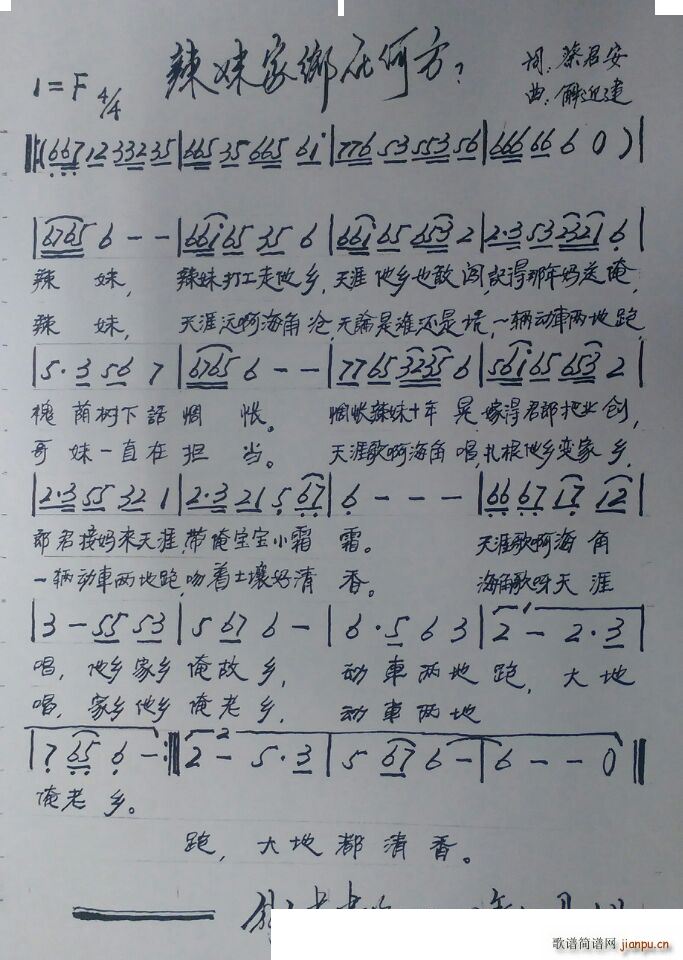 辣妹家鄉在何方?
1=F 4/4
词:蔡君安
曲:解迎建
‖:(667 12 332 35 | 665 35 665 61 | 776 53 553 56 | 666 66 6 0 ) |
| 6765 6 - - | 661 65 35 6 | 661 65 653 2 | 2·3 53 2321 6 |
辣 妹, 辣妹打工走他乡,天涯他乡也敢闯,記得那年妈送俺,
辣 妹, 天涯远啊海角沧,无論是难还是,一辆动車两地跑,
| 5·3 56 7 | 6765 6 - - | 77 65 3235 6 | 561 65 653 2 |
槐荫树下話惆 怅。 惆怅辣妹十年晃,嫁得君郎把业创,
哥妹一直在担 当。 天涯歌啊海角唱,扎根他乡变家乡,
| 2·3 55 32 1 | 2·3 21 5 67 | 6 - - - | 66 67 17 12 |
郎君接妈来天涯,带俺宝宝小霜 霜。 天涯歌啊海角
一辆动車两地跑,吻着土壤好清 香。 海角歌呀天涯
| 3 - 55 53 | 5 67 6 - | 6·5 6 3 | 2 - 2·3 |
唱,他乡家乡俺故乡, 动車两地跑,大地
唱,家乡他乡俺老乡, 动車两地
| 7 65 6 - :‖ 2 - 5·3 | 5 67 6 - | 6 - - 0 ‖
俺老乡。
跑,大地都清香。
歌谱简谱网 jianpu.cn